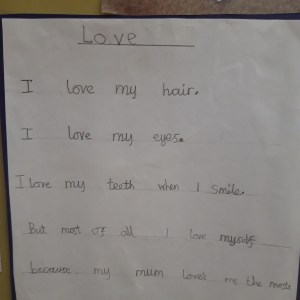 Love
I love my hair.
I love my eyes.
I love my teeth when I smile.
But most of all I love myself
because my mum loves me the most